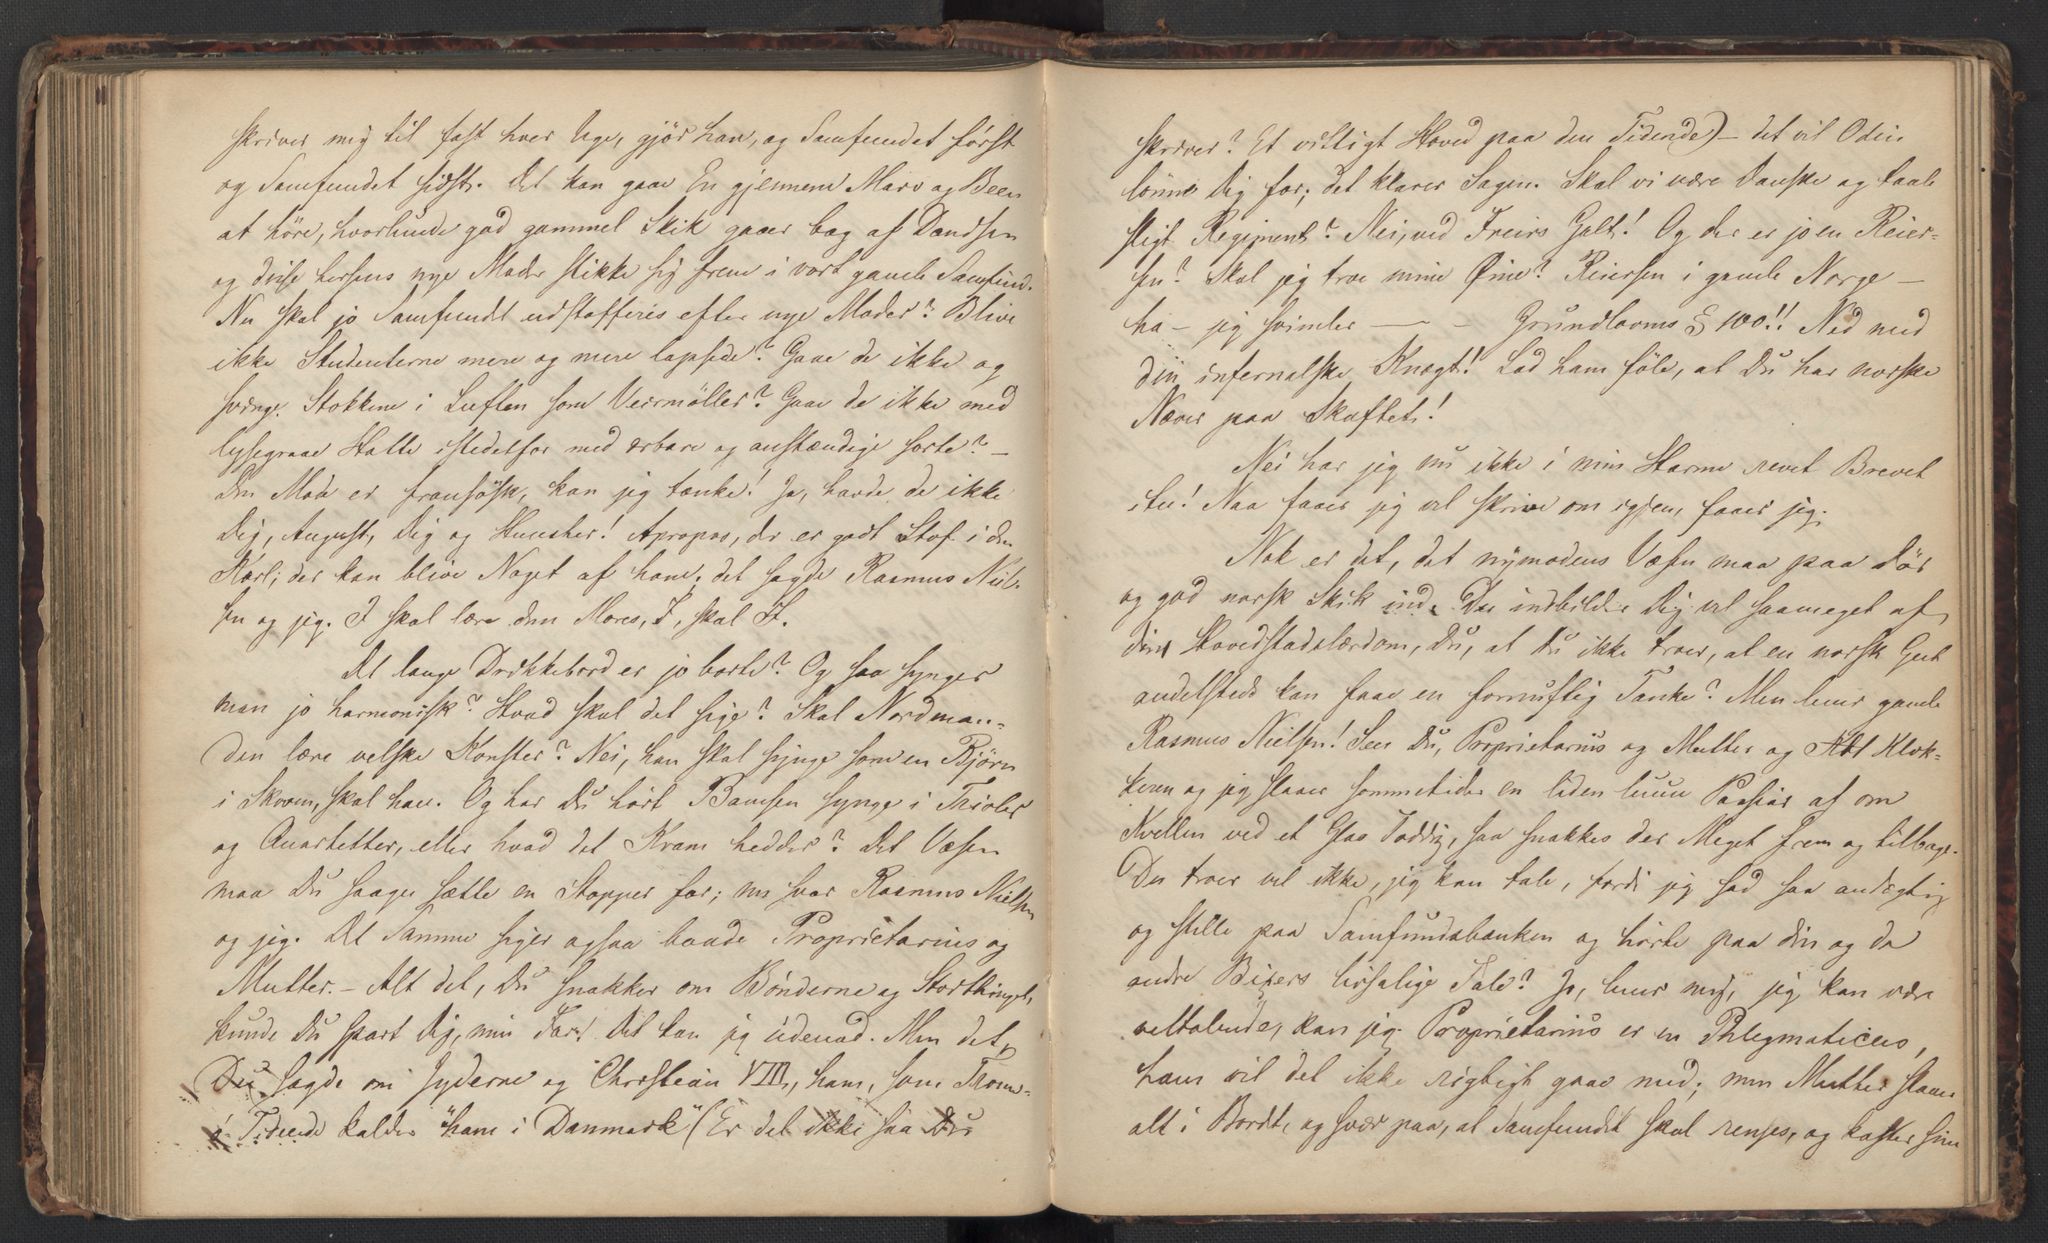 skriver mig til fast hver Uge, gjør han, og Samfundet først
og Samfundet sidst. Det kan gaae En gjennem Marv og Been
at høre, hvorlunde god gammel Skik gaaer bag af Dandsen
og disse hersens nye Moder stikke sig frem i vort gamle Samfund.
Nu skal jo Samfundet udstafferes efter nye Moder? Blive
ikke Studenterne mere og mere lapsede? Gaae de ikke og
svinge Stokkene i Luften som Veirmøller? Gaae de ikke med
lysegraae Hatte istedetfor med ærbare og anstændige sorte? –
den Mode er fransösk, kan jeg tænke! Ja, havde de ikke
Dig, August, Dig og Hunsher! Apropos, der er godt Stof i den
Karl; der kan blive Noget af ham; det sagde Rasmus Niel-
sen og jeg. I skal lære dem Mores, I, skal I.
Det lange Drikkebord er jo borte? Og saa synger
man jo harmonisk? Hvad skal det sige? Skal Nordman-
den lære velske Konster? Nei, han skal synge som en Bjørn
i Skoven, skal han. Og har Du hørt Bamsen synge i Trioler
og Quartetter, eller hvad det Kram hedder? Det Væsen
maa Du saagu sætte en Stopper for; ms svar Rasmus Nielsen
og jeg. Det Samme siger ogsaa baade Proprietarius og
Mutter. – Alt det, Du snakker om Bønderne og Storthinget,
kunde Du spart Dig, min Far! Det kan jeg udenad. Men det,
Du sagde om Jyderne og Christian VIII, ham, som Trom-
ø Tidende kalder "ham i Danmark" (Er det ikke saa Du
skriver? Et vittigt Hoved paa den Tidende) – det vil Odin
lønne Dig for; det klarer Sagen. Skal vi være Danske og taale
sligt Regiment? Nei, ved Freirs Galt! Og der er jo en Reier-
sen? Skal jeg troe mine Øine? Reiersen i gamle Norge –
ha – jeg svimler – – Grundlovens § 100!! Ned med
din infernalske Knægt! Lad ham føle, at Du har norske
Næver paa Skaftet!
Nei har jeg nu ikke i min Harme revet Brevet
itu! Naa faaer jeg vel skrive om igjen, faaer jeg.
Nok er det, det nymodens Væsen maa paa Dør
og god norsk Skik ind. Du indbilder Dig vel saameget af
din Hovedstadslærdom, Du, at Du ikke troer, at en norsk Gut
andetsteds kan faae en fornuftig Tanke? Men hør gamle
Rasmus Nielsen! Seer Du, Proprietarius og Mutter og Klok-
keren og jeg slaaer sommetider en liden luun Passiar af om
Kvellen ved et Glas Toddy, saa snakkes der Meget frem og tilbage.
Du troer vel ikke, jeg kan tale, fordi jeg sad saa andægtig
og stille paa Samfundsbænken og hørte paa din og de
andre Bisers livsalige Tale? Jo, hør mig, jeg kan være
veltalende, kan jeg. Proprietarius er en Phlegmaticus,
ham vil det ikke rigtigt gaae med; men Mutter slaaer
alt i Bordet, og svær paa, at Samfundet skal renses, og kaster sine